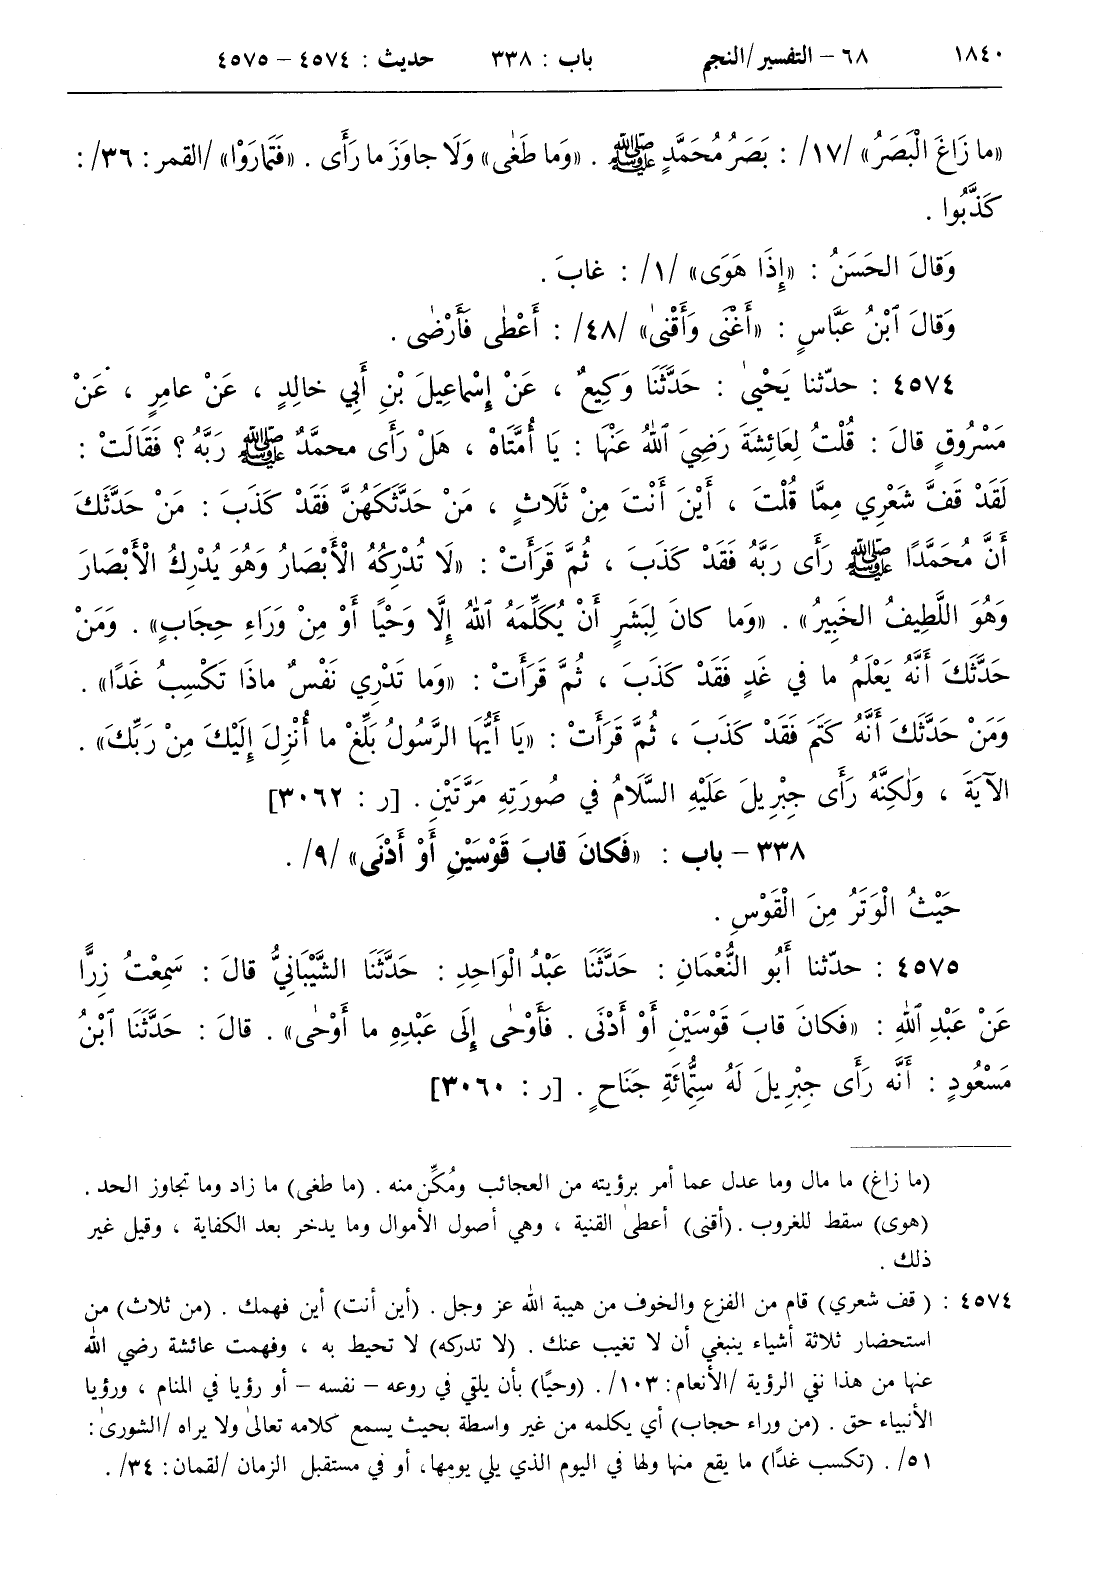 ١٨٤٠ ٦٨ – التفسير/النجم باب : ٣٣٨ حديث : ٤٥٧٤ – ٤٥٧٥
«ما زَاغَ الْبَصَرُ» /١٧/ : بَصَرُ مُحَمَّدٍ ﷺ . «وَما طَغٰى» وَلَا جاوَزَ ما رَأَى . «فَتَمارَوْا» /القمر : ٣٦/ :
كَذَّبُوا .
وَقالَ الحَسَنُ : «إِذَا هَوَى» /١/ : غابَ .
وَقالَ ٱبْنُ عَبَّاسٍ : «أَغْنَى وَأَقْنىٰ» /٤٨/ : أَعْطٰى فَأَرْضٰى .
٤٥٧٤ : حدّثنا يَحْيىٰ : حَدَّثَنَا وَكِيعٌ ، عَنْ إِسْماعِيلَ بْنِ أَبِي خالِدٍ ، عَنْ عامِرٍ ، عَنْ
مَسْرُوقٍ قالَ : قُلْتُ لِعَائِشَةَ رَضِيَ ٱللهُ عَنْهَا : يَا أُمَّتَاهْ ، هَلْ رَأَى محمَّدٌ ﷺ رَبَّهُ ؟ فَقَالَتْ :
لَقَدْ قَفَّ شَعْرِي مِمَّا قُلْتَ ، أَيْنَ أَنْتَ مِنْ ثَلَاثٍ ، مَنْ حَدَّثَكَهُنَّ فَقَدْ كَذَبَ : مَنْ حَدَّثَكَ
أَنَّ مُحَمَّدًا ﷺ رَأَى رَبَّهُ فَقَدْ كَذَبَ ، ثُمَّ قَرَأَتْ : «لَا تُدْرِكُهُ الْأَبْصَارُ وَهُوَ يُدْرِكُ الْأَبْصَارَ
وَهُوَ اللَّطِيفُ الخَبِيرُ» . «وَما كانَ لِبَشَرٍ أَنْ يُكَلِّمَهُ ٱللهُ إِلَّا وَحْيًا أَوْ مِنْ وَرَاءِ حِجَابٍ» . وَمَنْ
حَدَّثَكَ أَنَّهُ يَعْلَمُ ما في غَدٍ فَقَدْ كَذَبَ ، ثُمَّ قَرَأَتْ : «وَما تَدْرِي نَفْسٌ ماذَا تَكْسِبُ غَدًا» .
وَمَنْ حَدَّثَكَ أَنَّهُ كَتَمَ فَقَدْ كَذَبَ ، ثُمَّ قَرَأَتْ : «يَا أَيُّهَا الرَّسُولُ بَلِّغْ ما أُنْزِلَ إِلَيْكَ مِنْ رَبِّكَ» .
الآيَةَ ، وَلٰكِنَّهُ رَأَى جِبْرِيلَ عَلَيْهِ السَّلَامُ في صُورَتِهِ مَرَّتَيْنِ . [ر : ٣٠٦٢]
٣٣٨ – باب : «فَكانَ قابَ قَوْسَيْنِ أَوْ أَدْنَى» /٩/ .
حَيْثُ الْوَتَرُ مِنَ الْقَوْسِ .
٤٥٧٥ : حدّثنا أَبُو النُّعْمَانِ : حَدَّثَنَا عَبْدُ الْوَاحِدِ : حَدَّثَنَا الشَّيْبَانِيُّ قالَ : سَمِعْتُ زِرًّا
عَنْ عَبْدِ ٱللهِ : «فَكانَ قابَ قَوْسَيْنِ أَوْ أَدْنَى . فَأَوْحٰى إِلَى عَبْدِهِ ما أَوْحٰى» . قالَ : حَدَّثَنَا ٱبْنُ
مَسْعُودٍ : أَنَّه رَأَى جِبْرِيلَ لَهُ سِتُّمِائَةِ جَنَاحٍ . [ر : ٣٠٦٠]
(ما زاغ) ما مال وما عدل عما أمر برؤيته من العجائب ومُكِّن منه . (ما طغى) ما زاد وما تجاوز الحد .
(هوى) سقط للغروب . (أقنى) أعطىٰ القنية ، وهي أصول الأموال وما يدخر بعد الكفاية ، وقيل غير
ذلك .
٤٥٧٤ : ( قف شعري) قام من الفزع والخوف من هيبة الله عز وجل . (أين أنت) أين فهمك . (من ثلاث) من
استحضار ثلاثة أشياء ينبغي أن لا تغيب عنك . (لا تدركه) لا تحيط به ، وفهمت عائشة رضي الله
عنها من هذا نفي الرؤية /الأنعام : ١٠٣/ . (وحيًا) بأن يلقي في روعه – نفسه – أو رؤيا في المنام ، ورؤيا
الأنبياء حق . (من وراء حجاب) أي يكلمه من غير واسطة بحيث يسمع كلامه تعالىٰ ولا يراه /الشورىٰ :
٥١/ . (تكسب غدًا) ما يقع منها ولها في اليوم الذي يلي يومها، أو في مستقبل الزمان /لقمان : ٣٤/ .